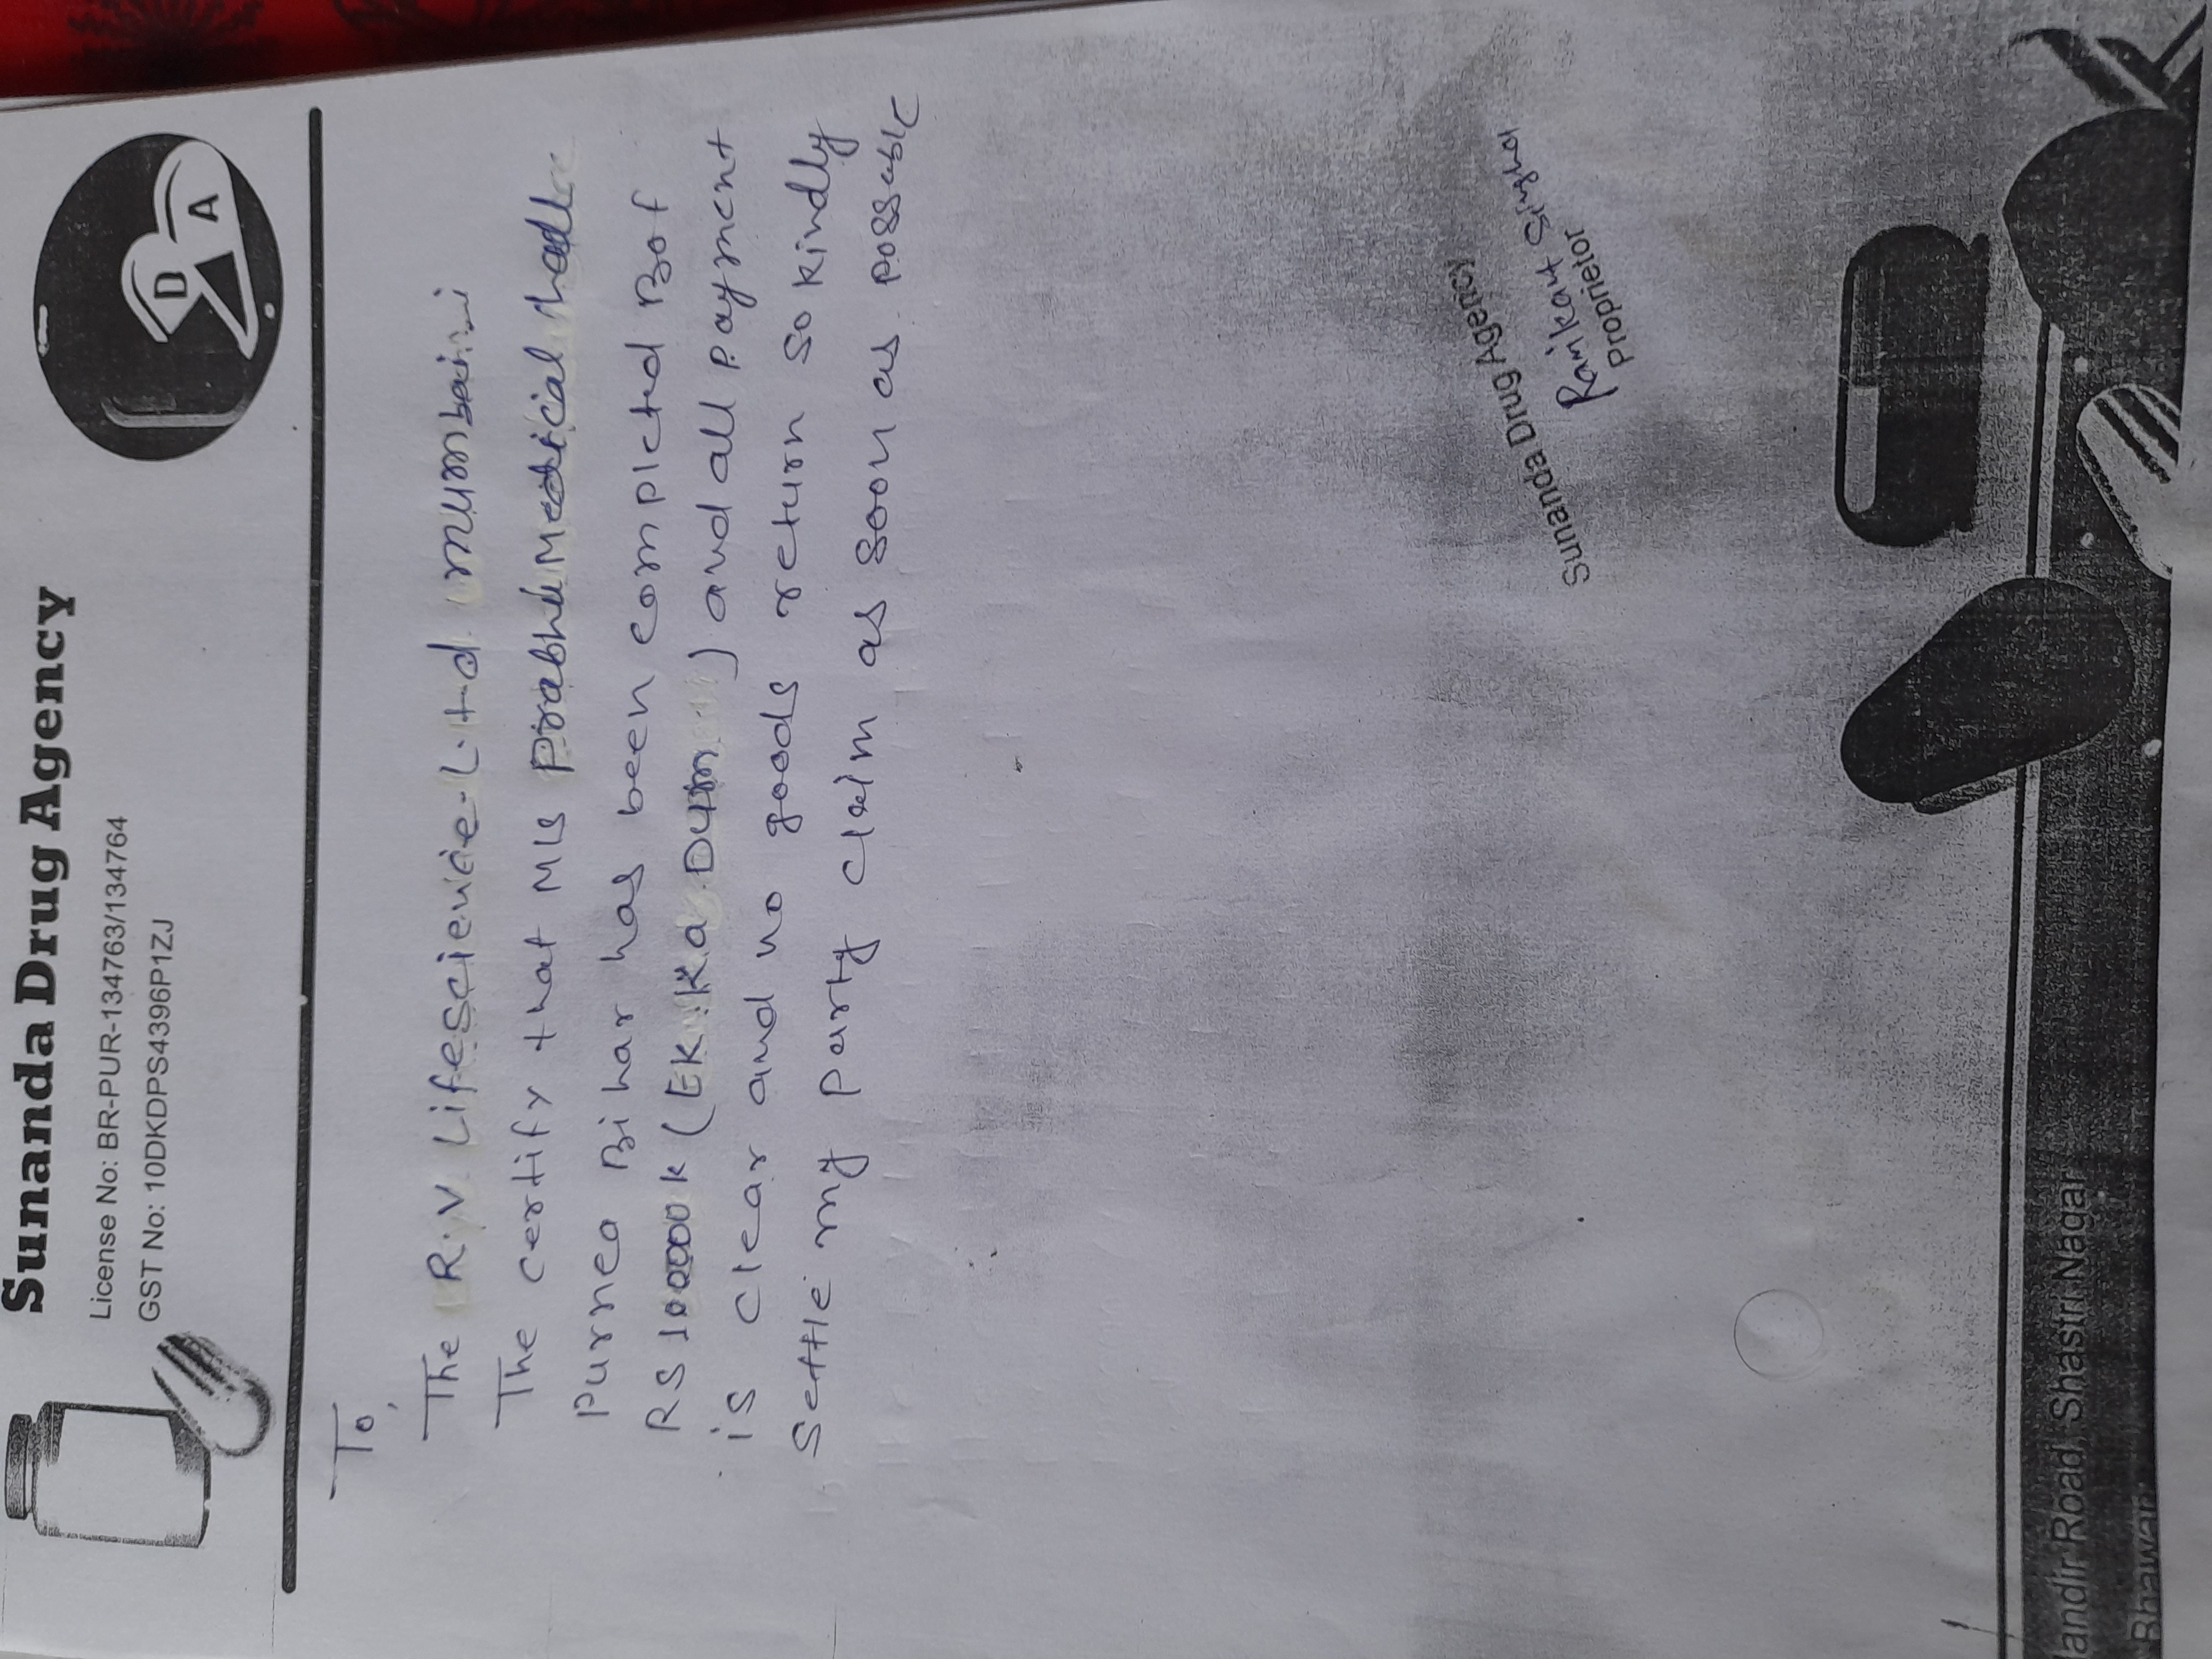 Sunanda Drug Agency
License No: BR-PUR-134763/134764
GST No: 10DKDPS4396P1ZJ
D A
To,
The R.V Lifescience Ltd
The certify that M/s Prabhu Medical
Purnea Bihar has been completed
RS (EKKA Dum) and all payment
is clear and no goods return so kindly
settle my party cleim as soon as possable
Sunanda Drug Agency
Proprietor
andir Road, Shastri Nagar
Bhawan